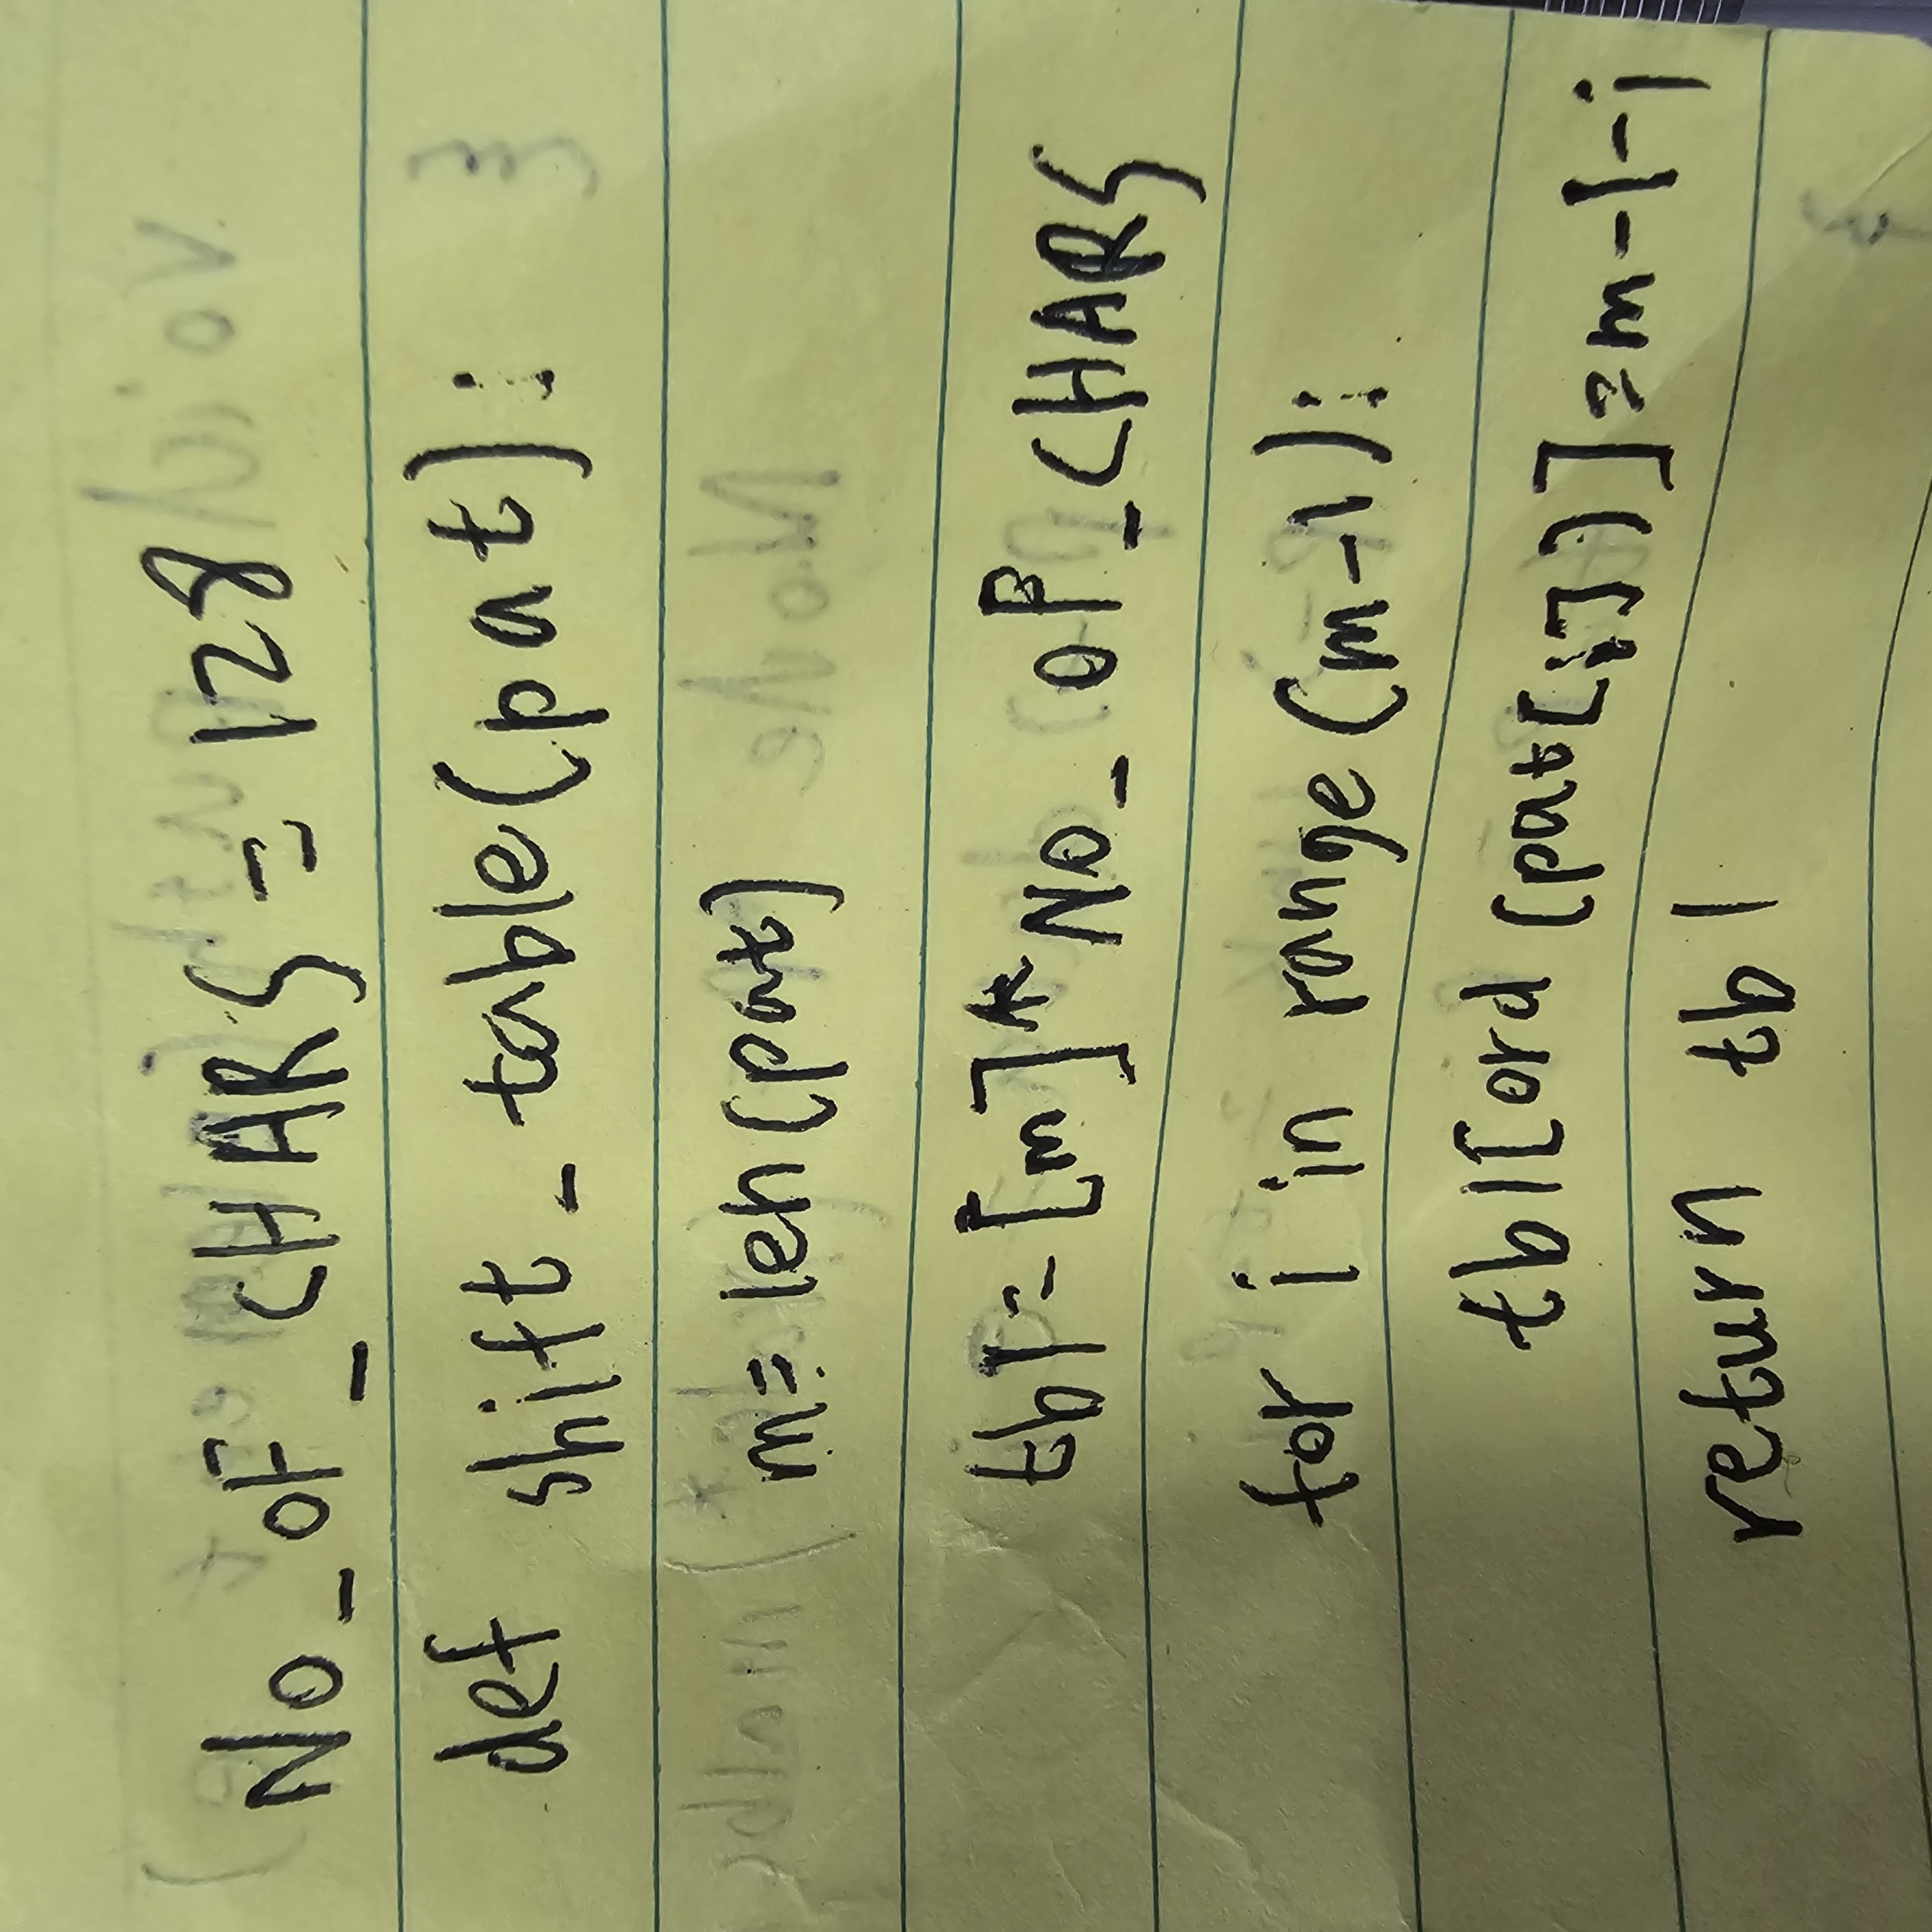 NO_OF_CHARS = 128
def shift_table(pat):
m= len(pat)
tbl= [m]*NO_OF_CHARS
for i in range(m-1):
tbl[ord (pat[i])]=m-1-i
return tbl